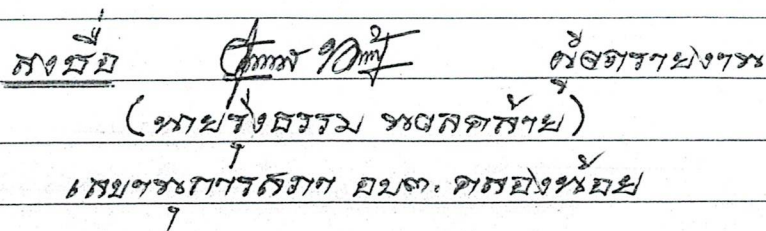 ลงชื่อ ผู้จดรายงาน
(นายรุ่งธรรม นวลคล้าย)
เลขานุการสภา อบต. คลองน้อย